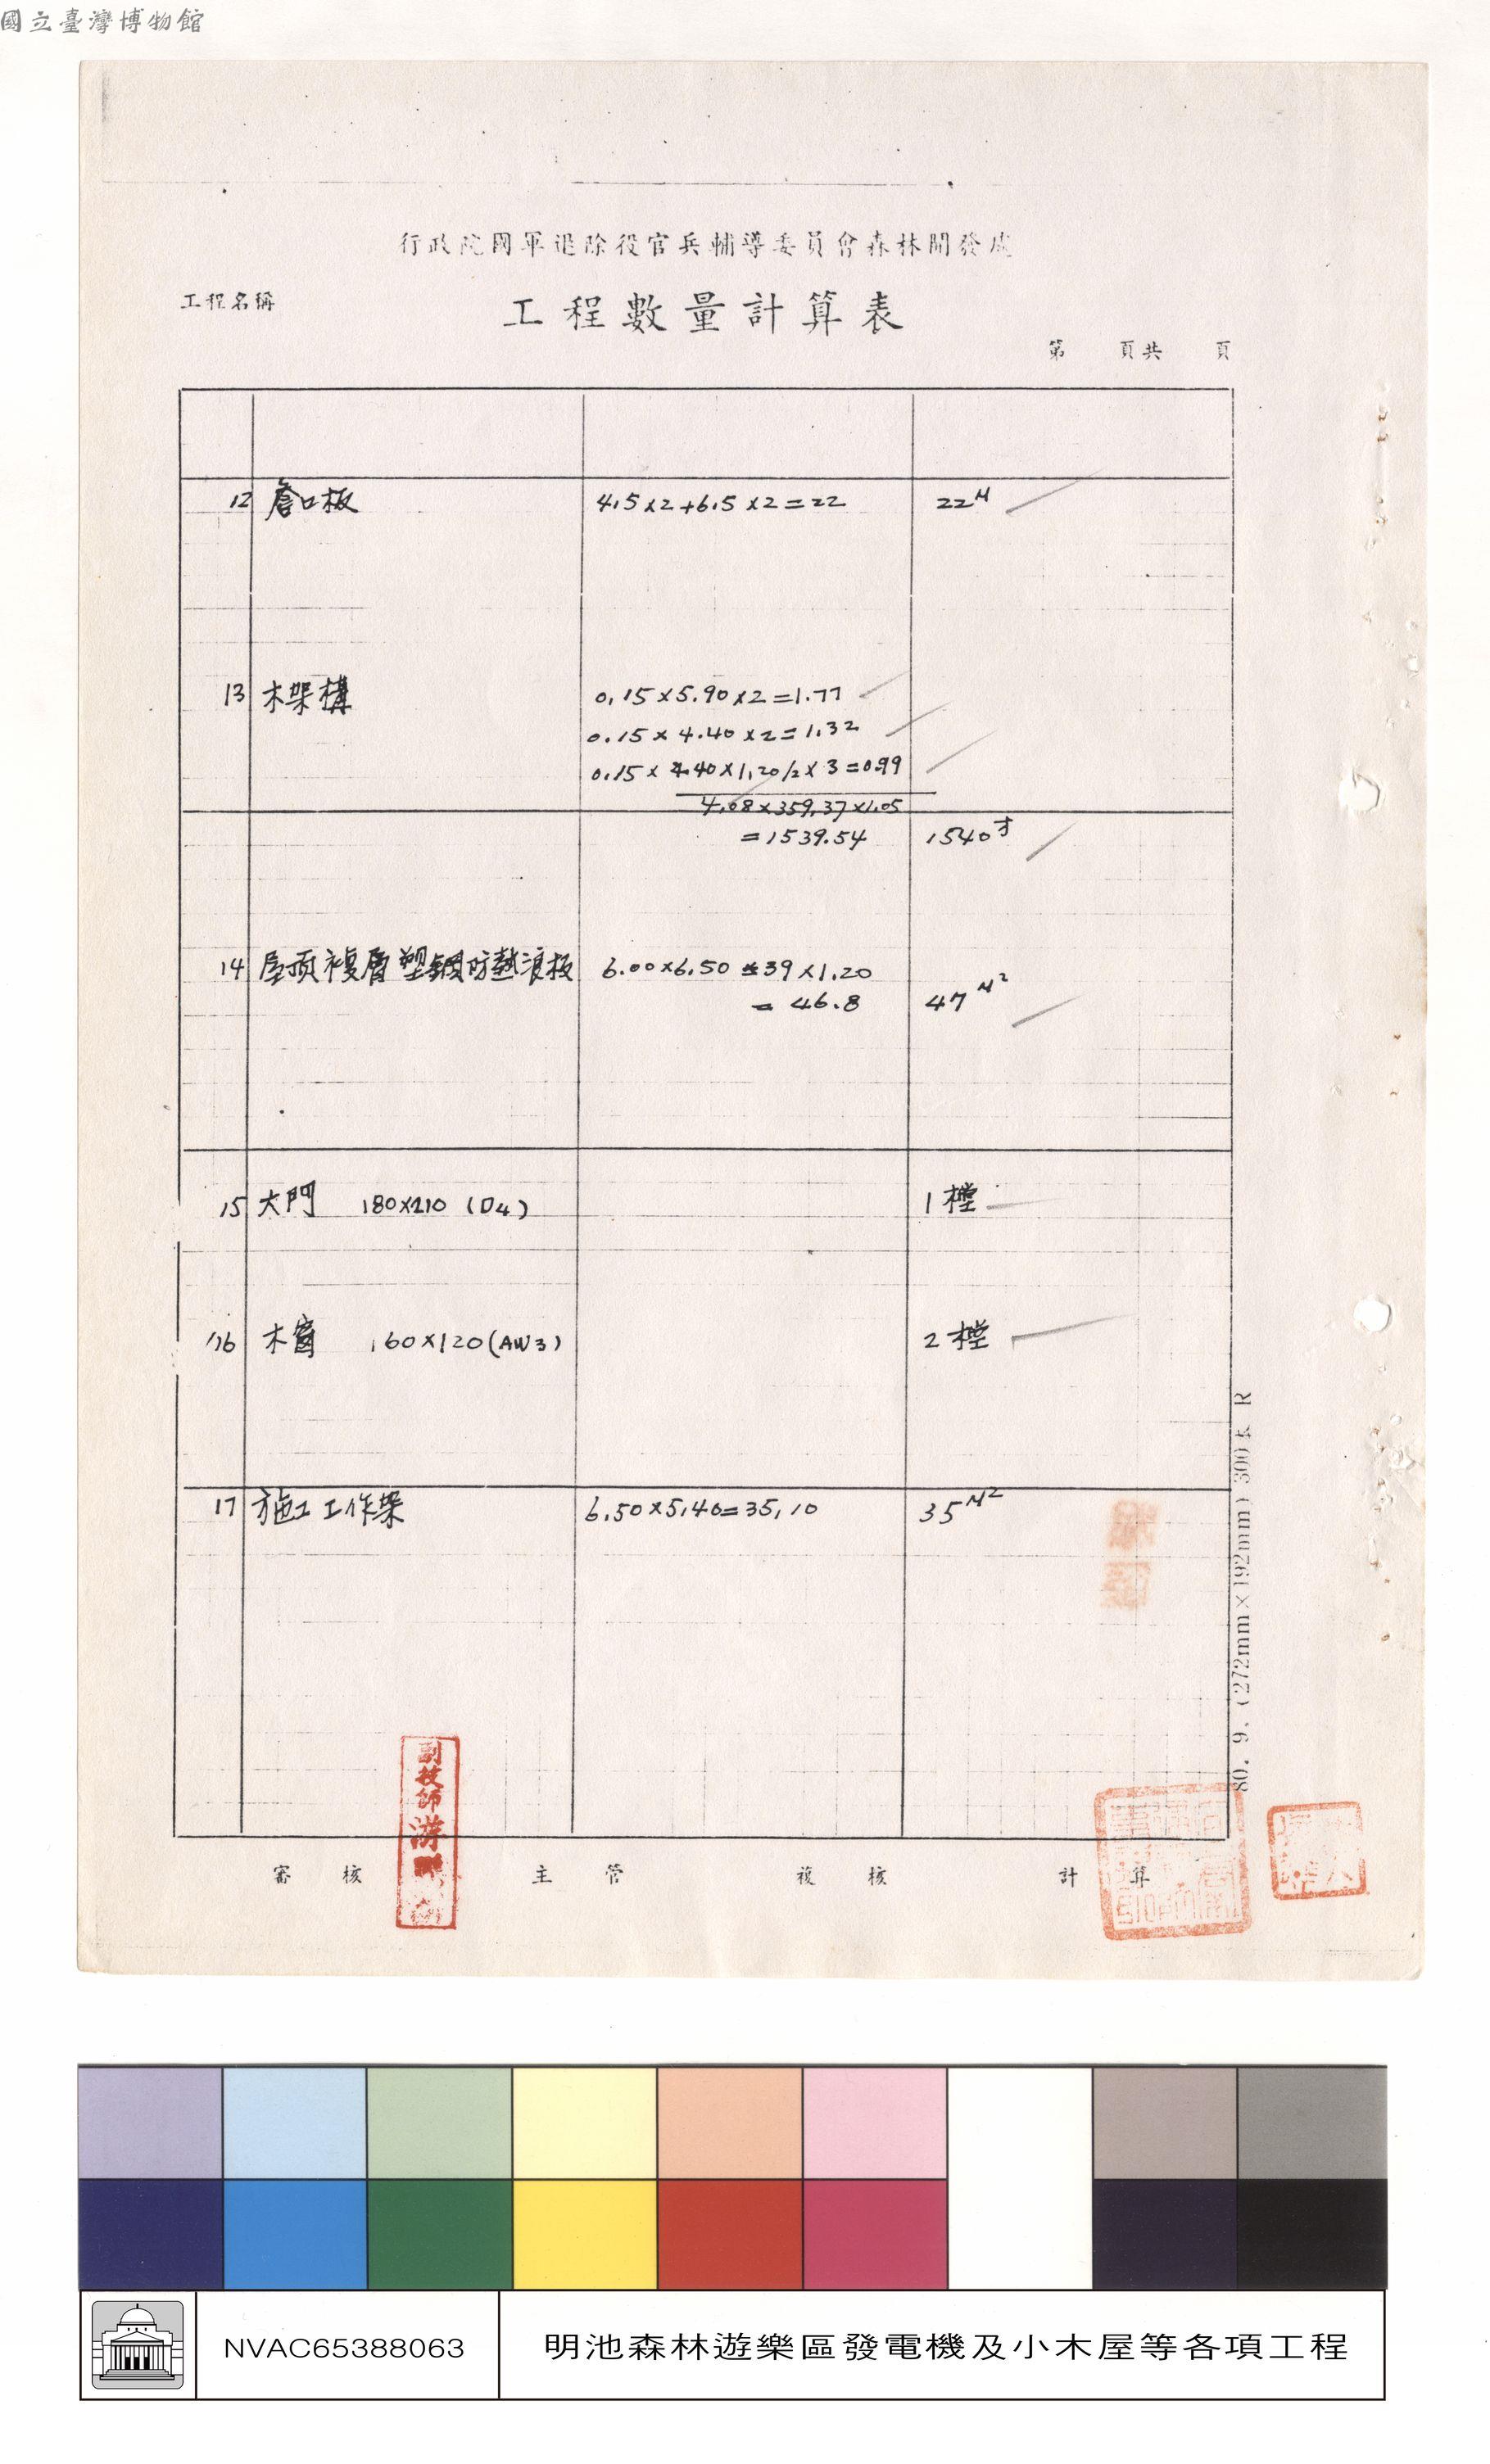 國立臺灣博物館
行政院國軍退除役官兵輔導委員會森林開發處
工程名稱
工程數量計算表
第 頁共 頁
12 簷口板 4.5×2+6.5×2=22 22M
13 木架構 0.15×5.90×2=1.77
0.15×4.40×2=1.32
0.15×4.40×1.20/2×3=0.99
4.08×359.37×1.05
=1539.54 1540才
14 屋頂複層塑鋼防熱浪板 6.00×6.50=39×1.20
= 46.8 47M²
15 大門 180×210 (D4) 1樘
16 木窗 160×120(AW3) 2樘
17 施工工作架 6.50×5.40=35.10 35M²
80. 9. (272mm×192mm) 300本 R
副技師游
審核 主管 複核 計算
NVAC65388063
明池森林遊樂區發電機及小木屋等各項工程